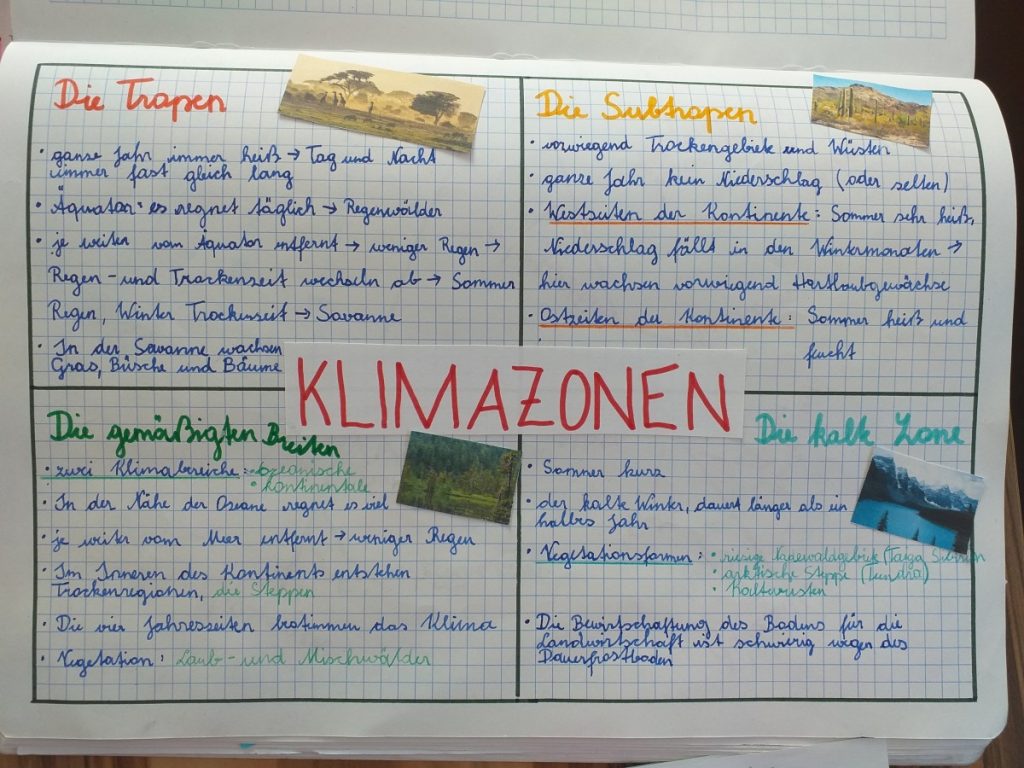 Die Tropen
• ganze Jahr immer heiß → Tag und Nacht
immer fast gleich lang
• Äquator: es regnet täglich → Regenwälder
• je weiter vom Äquator entfernt → weniger Regen →
Regen- und Trockenzeit wechseln ab → Sommer
Regen, Winter Trockenzeit → Savanne
• In der Savanne wachsen
Gras, Büsche und Bäume
Die Subtropen
• vorwiegend Trockengebiete und Wüsten
• ganze Jahr kein Niederschlag (oder selten)
• Westseiten der Kontinente: Sommer sehr heiß,
Niederschlag fällt in den Wintermonaten →
hier wachsen vorwiegend Hartlaubgewächse
• Ostseiten der Kontinente: Sommer heiß und
feucht
KLIMAZONEN
Die gemäßigten Breiten
• zwei Klimabreiche: • ozeanische
• kontinentale
• In der Nähe der Ozeane regnet es viel
• je weiter vom Meer entfernt → weniger Regen
• Im Inneren des Kontinents entstehen
Trockenregionen, die Steppen
• Die vier Jahreszeiten bestimmen das Klima
• Vegetation: Laub- und Mischwälder
Die kalte Zone
• Sommer kurz
• der kalte Winter, dauert länger als ein
halbes Jahr
• Vegetationsformen: • riesige Nagewaldgebiete (Taiga Sibirien
• arktische Steppe (Tundra)
• Kältewüsten
• Die Bewirtschaftung des Bodens für die
Landwirtschaft ist schwierig wegen des
Dauerfrostboden